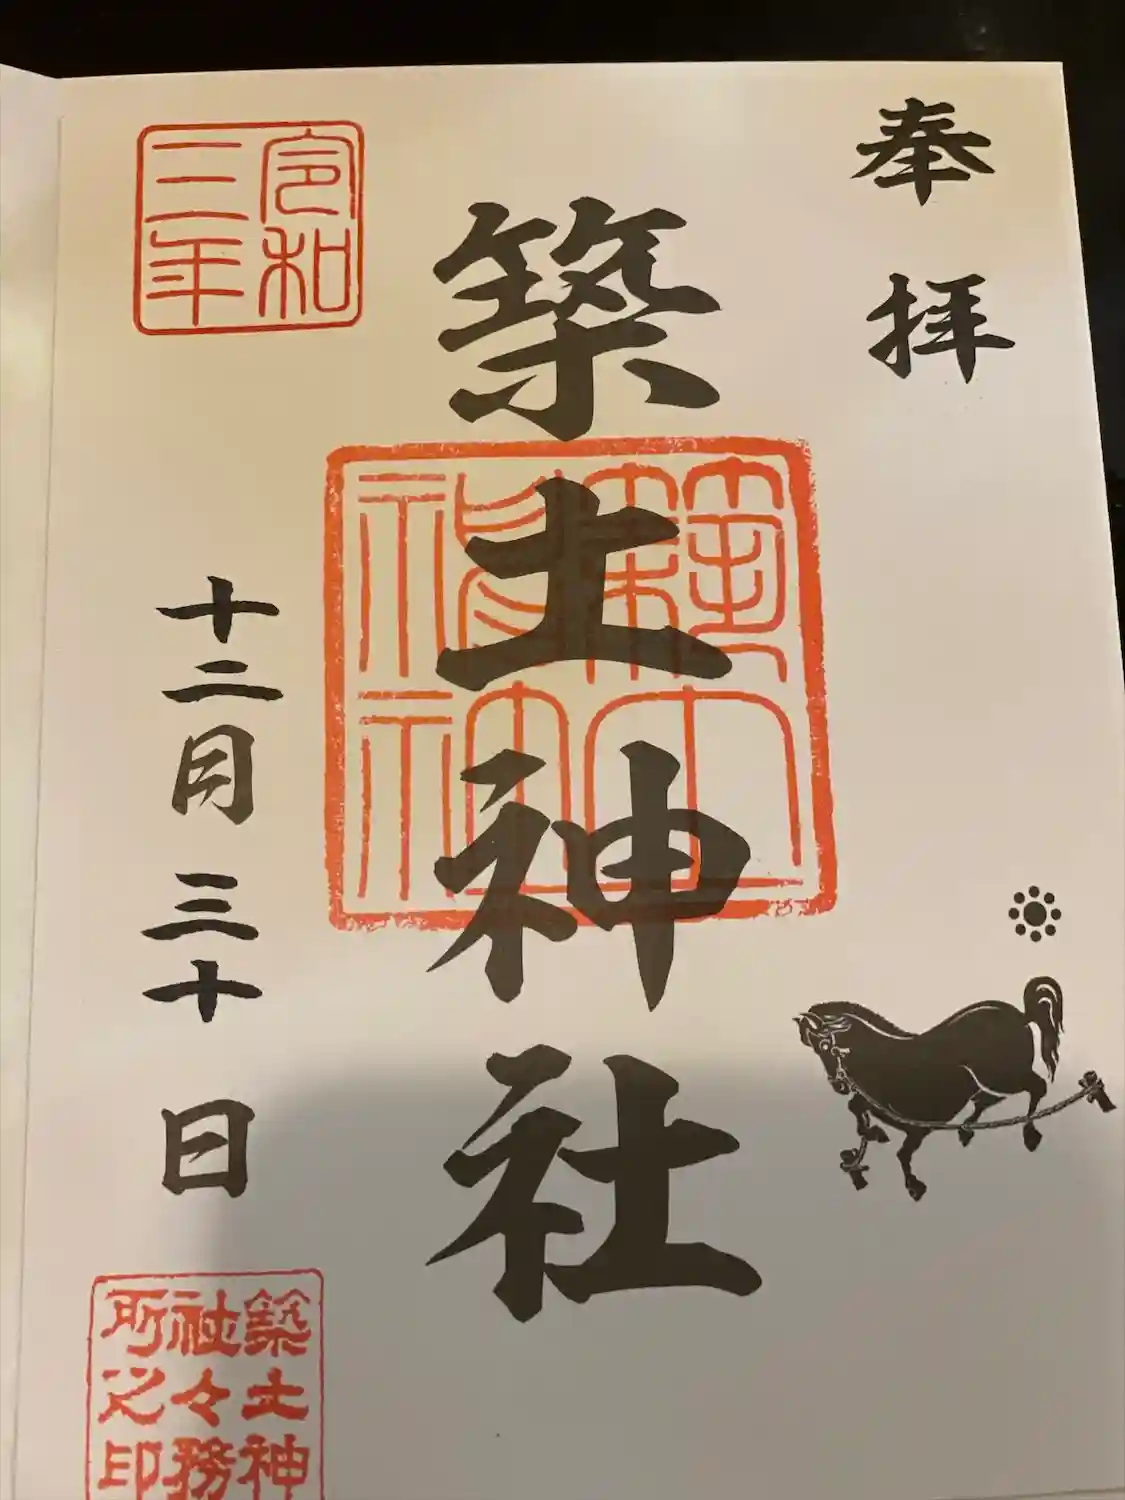 奉拝
築土神社
築土神社
令和
三年
十二月三十日
築土神
社々務
所之印